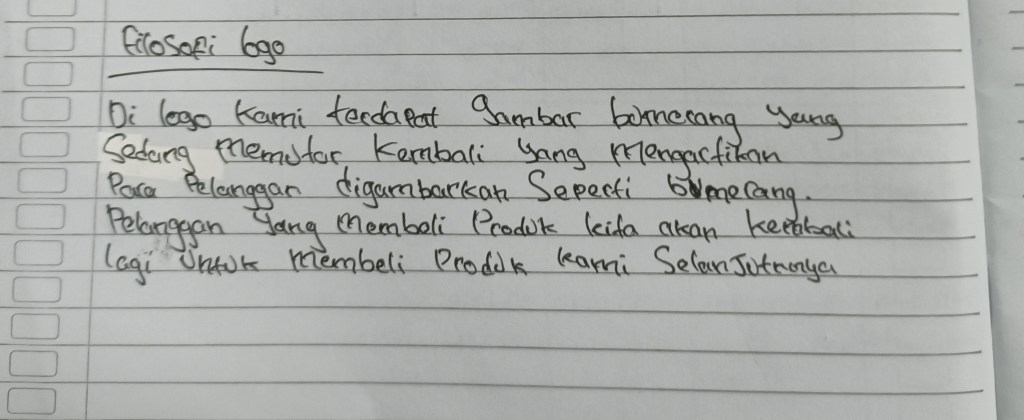 filosofi logo
Di logo kami terdapat gambar bomerang yang
Sedang memutar kembali yang mengartikan
Para Pelanggan digambarkan Seperti bumerang.
Pelanggan yang membeli Produk kita akan kembali
lagi untuk membeli Produk kami Selanjutnya